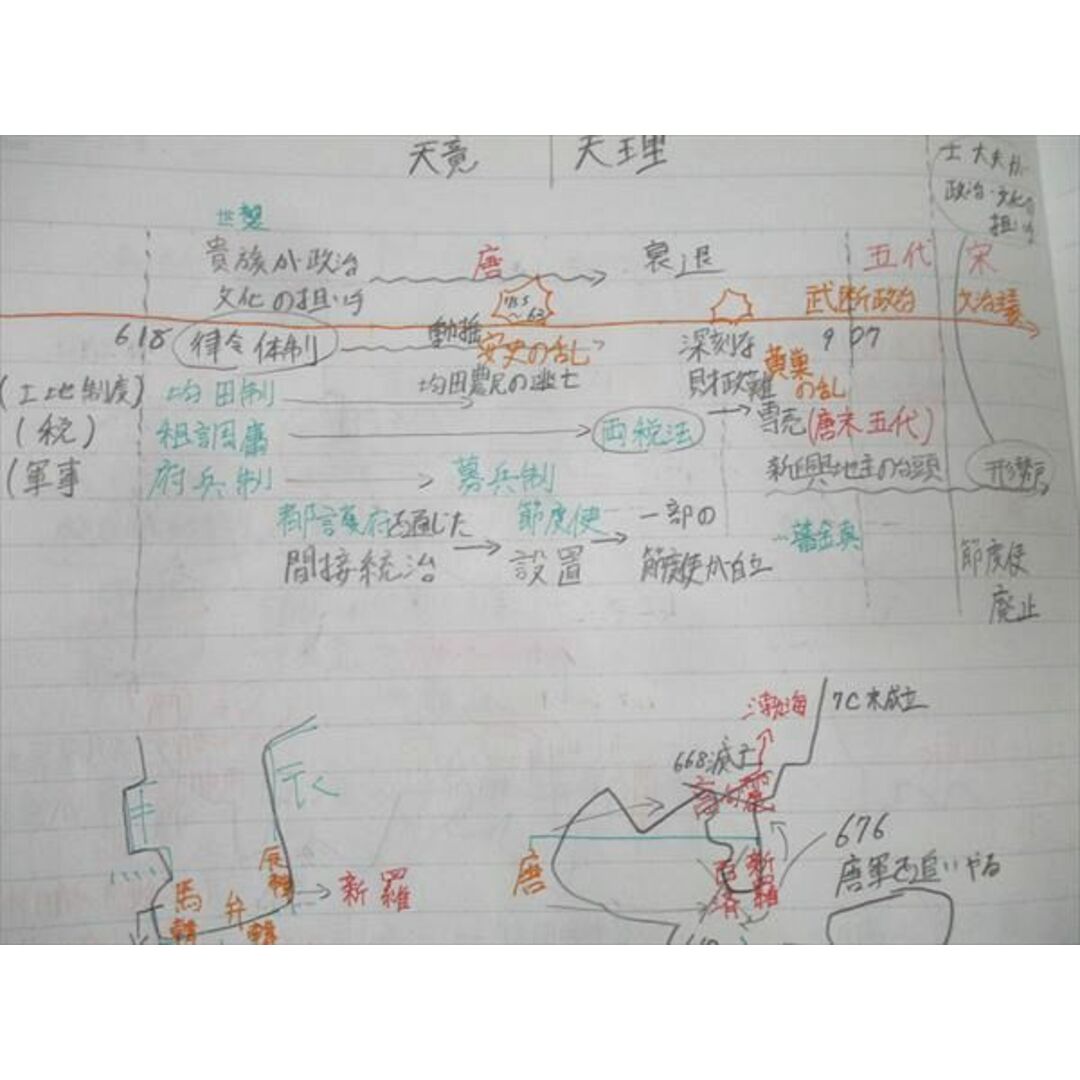 天竟 天理
士大夫が
政治・文化の
担い手
世襲
貴族が政治 唐 衰退 五代 宋
文化の担い手 755~63 武断政治 文治主義
618 律令体制 動揺 安史の乱 深刻な 907
財政難 黄巣の乱
(土地制度) 均田制 均田農民の逃亡
(税) 租調庸 両税法 専売 (唐末五代)
(軍事 府兵制 募兵制 新興地主の台頭 形勢戸
都護府を通じた 節度使 一部の 藩鎮
間接統治 設置 節度使が自立 節度使
廃止
渤海 7C末成立
668滅亡
高句麗
676
唐軍を追いやる
唐 百済 新羅
辰韓
馬韓 弁韓 新羅